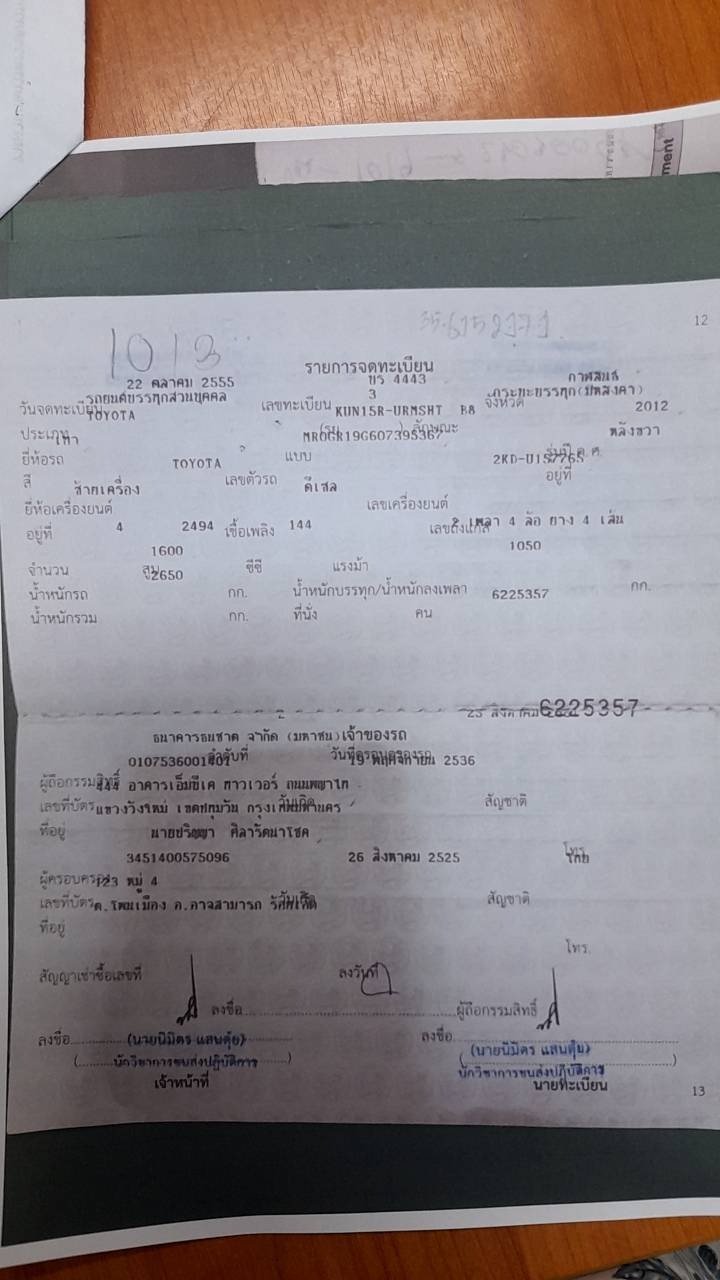 ment
12
1013
35.6152171
รายการจดทะเบียน
22 ตุลาคม 2555 บร 4443 กาฬสินธุ์
วันจดทะเบียน รถยนต์บรรทุกส่วนบุคคล เลขทะเบียน 3 จังหวัด กระบะบรรทุก(มีหลังคา)
TOYOTA KUN15R-URMSHT B8 2012
ประเภท เทา (รย. ) ลักษณะ MR0GR19G607395367 หลังขวา
ยี่ห้อรถ TOYOTA แบบ 2KD-U157765 รุ่นปี ค.ศ.
สี ซ้ายเครื่อง เลขตัวรถ ดีเซล อยู่ที่
ยี่ห้อเครื่องยนต์ เลขเครื่องยนต์
อยู่ที่ 4 2494 เชื้อเพลิง 144 เลขถังแก๊ส 2 เพลา 4 ล้อ ยาง 4 เส้น
1600 1050
จำนวน สูบ 2650 ซีซี แรงม้า
น้ำหนักรถ กก. น้ำหนักบรรทุก/น้ำหนักลงเพลา 6225357 กก.
น้ำหนักรวม กก. ที่นั่ง คน
2 23 สิงหาคม 6225357
ธนาคารธนชาต จำกัด (มหาชน) เจ้าของรถ
0107536001401 ลำดับที่ วันที่ครอบครองรถ 19 พฤศจิกายน 2536
ผู้ถือกรรมสิทธิ์ 444 อาคารเอ็มบีเค ทาวเวอร์ ถนนพญาไท
เลขที่บัตร แขวงวังใหม่ เขตปทุมวัน กรุงเทพมหานคร วันเกิด สัญชาติ
ที่อยู่ นายปริญญา ศิลารัตนาโชค
3451400575096 26 สิงหาคม 2525 โทร. ไทย
ผู้ครอบครอง 123 หมู่ 4
เลขที่บัตร ต.โพนเมือง อ.อาจสามารถ วันเกิด สัญชาติ
ที่อยู่
โทร.
สัญญาเช่าซื้อเลขที่ ลงวันที่
ลงชื่อ ผู้ถือกรรมสิทธิ์
ลงชื่อ (นายนิมิตร แสนตุ้ย) ลงชื่อ (นายนิมิตร แสนตุ้ย)
(นักวิชาการขนส่งปฏิบัติการ) (นักวิชาการขนส่งปฏิบัติการ)
เจ้าหน้าที่ นายทะเบียน
13